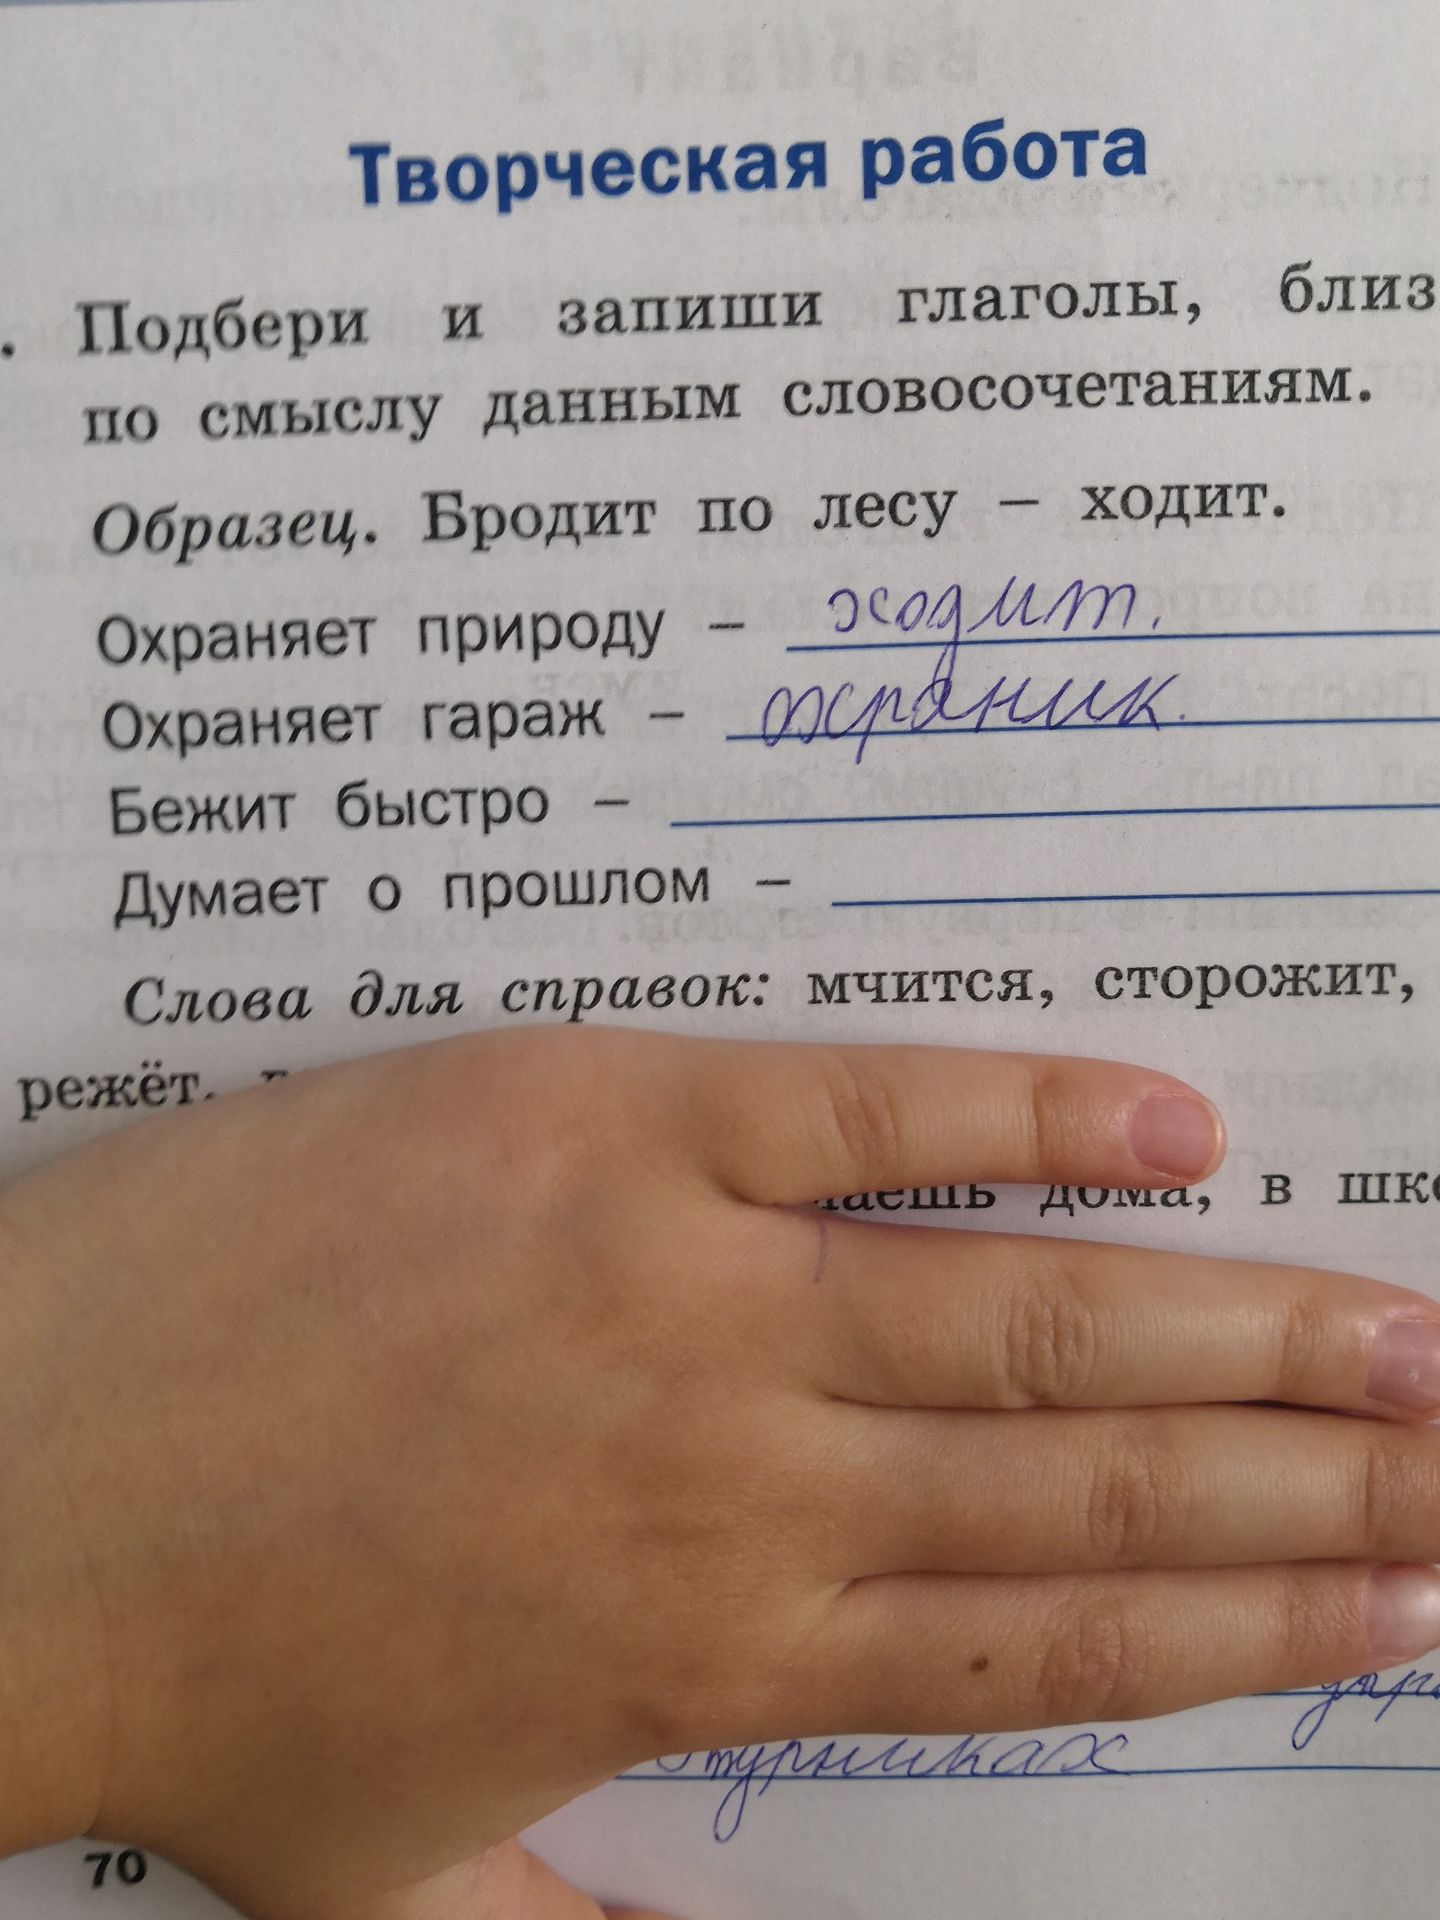 Творческая работа
. Подбери и запиши глаголы, близ
по смыслу данным словосочетаниям.
Образец. Бродит по лесу – ходит.
Охраняет природу – ходит.
Охраняет гараж – охраник.
Бежит быстро –
Думает о прошлом –
Слова для справок: мчится, сторожит,
режёт,
лаешь дома, в шко
турниках
70